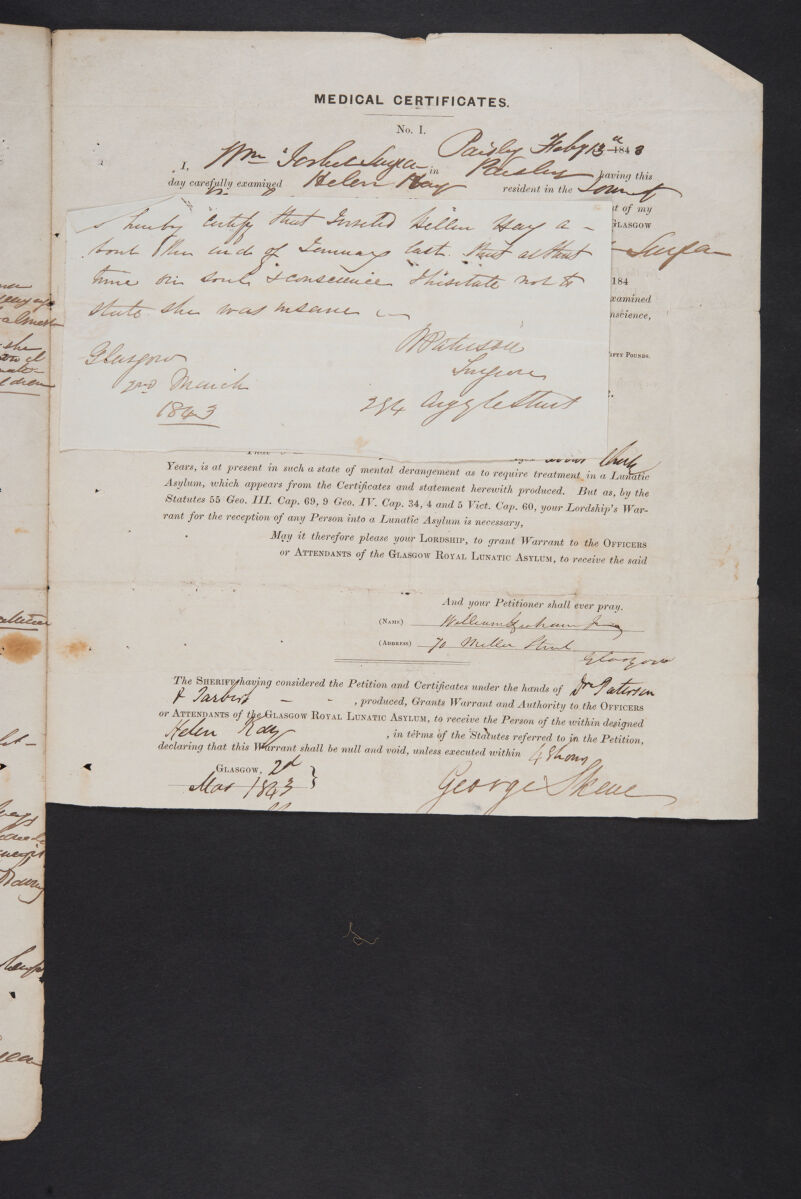 MEDICAL CERTIFICATES.
No. I.
Paisley Feby 13th 1843
I, Wm Surgeon in Paisley having this
day carefully examined Helen Hay resident in the Town of
I hereby certify that I visited Hellen Hay a-
bout the end of January last. that at that
time on soul & conscience I hesitate not to
state she was insane
Glasgow
2nd March
1843
Paterson
Surgeon
254 Argyle Street
t of my
GLASGOW
Surgeon
184
xamined
nscience,
IFTY POUNDS.
Years, is at present in such a state of mental derangement as to require treatment in a Lunatic
Asylum, which appears from the Certificates and statement herewith produced. But as, by the
Statutes 55 Geo. III. Cap. 69, 9 Geo. IV. Cap. 34, 4 and 5 Vict. Cap. 60, your Lordship's War-
rant for the reception of any Person into a Lunatic Asylum is necessary,
May it therefore please your LORDSHIP, to grant Warrant to the OFFICERS
or ATTENDANTS of the GLASGOW ROYAL LUNATIC ASYLUM, to receive the said
And your Petitioner shall ever pray.
(NAME) William Graham Jr
(ADDRESS) 70 Miller Street
Glasgow
The SHERIFF having considered the Petition and Certificates under the hands of Dr Paterson
& Tarbert - - , produced, Grants Warrant and Authority to the OFFICERS
or ATTENDANTS of the GLASGOW ROYAL LUNATIC ASYLUM, to receive the Person of the within designed
Helen Hay , in terms of the Statutes referred to in the Petition,
declaring that this Warrant shall be null and void, unless executed within 48 hours
GLASGOW, 2d
Mar 1843
George Skene